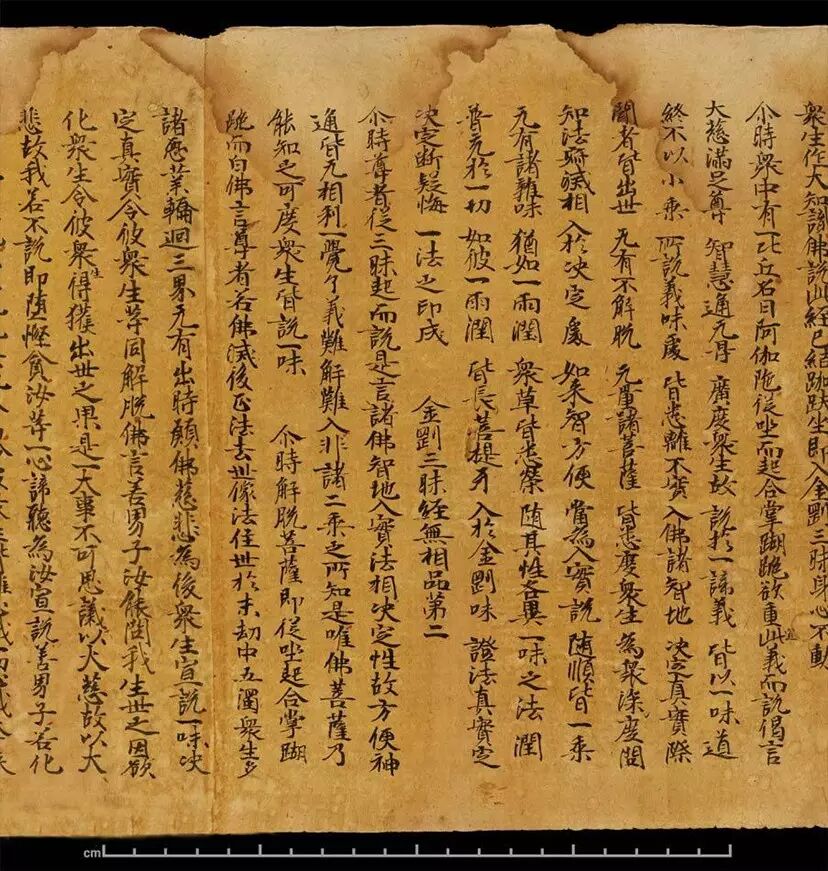 衆生作大知識佛說此經已結跏趺坐即入金剛三昧身心不動
尒時衆中有一比丘名曰阿伽陁從坐而起合掌䠒跪欲重宣此義而說偈言
大慈滿足尊 智慧通无㝵 廣度衆生故 說於一諦義 皆以一味道
終不以小乘 所說義味處 皆悉離不實 入佛諸智地 决定真實際
聞者皆出世 无有不解脫 无量諸菩薩 皆悉度衆生 為衆深度問
知法寂滅相 入於决定處 如來智方便 當為入實說 隨順皆一乘
无有諸雜味 猶如一雨潤 衆草皆悉榮 隨其性各異 一味之法潤
普充於一切 如彼一雨潤 皆長菩提牙 入於金剛味 證法真實定
决定斷疑悔 一法之印成 金剛三昧經無相品第二
尒時尊者從三昧起而說是言諸佛智地入實法相决定性故方便神
通皆无相利一覺了義難解難入非諸二乘之所知是唯佛菩薩乃
能知之可度衆生皆說一味 尒時解脫菩薩即從坐起合掌䠒
跪而白佛言尊者若佛滅後正法去世像法住世於末劫中五濁衆生多
諸惡業輪迴三界无有出時願佛慈悲為後衆生宣說一味决
定真實令彼衆生等同解脫佛言善男子汝能問我生世之因欲
化衆生令彼衆生得獲出世之果是一大事不可思議以大慈故以大
悲故我若不說即墮慳貪汝等一心諦聽為汝宣說善男子若化
cm